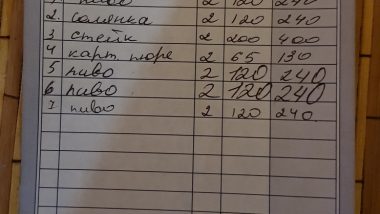 2 120 240
2. Солянка 2 120 240
3 стейк 2 200 400
4 карт пюре 2 65 130
5 пиво 2 120 240
6 пиво 2 120 240
7 пиво 2 120 240